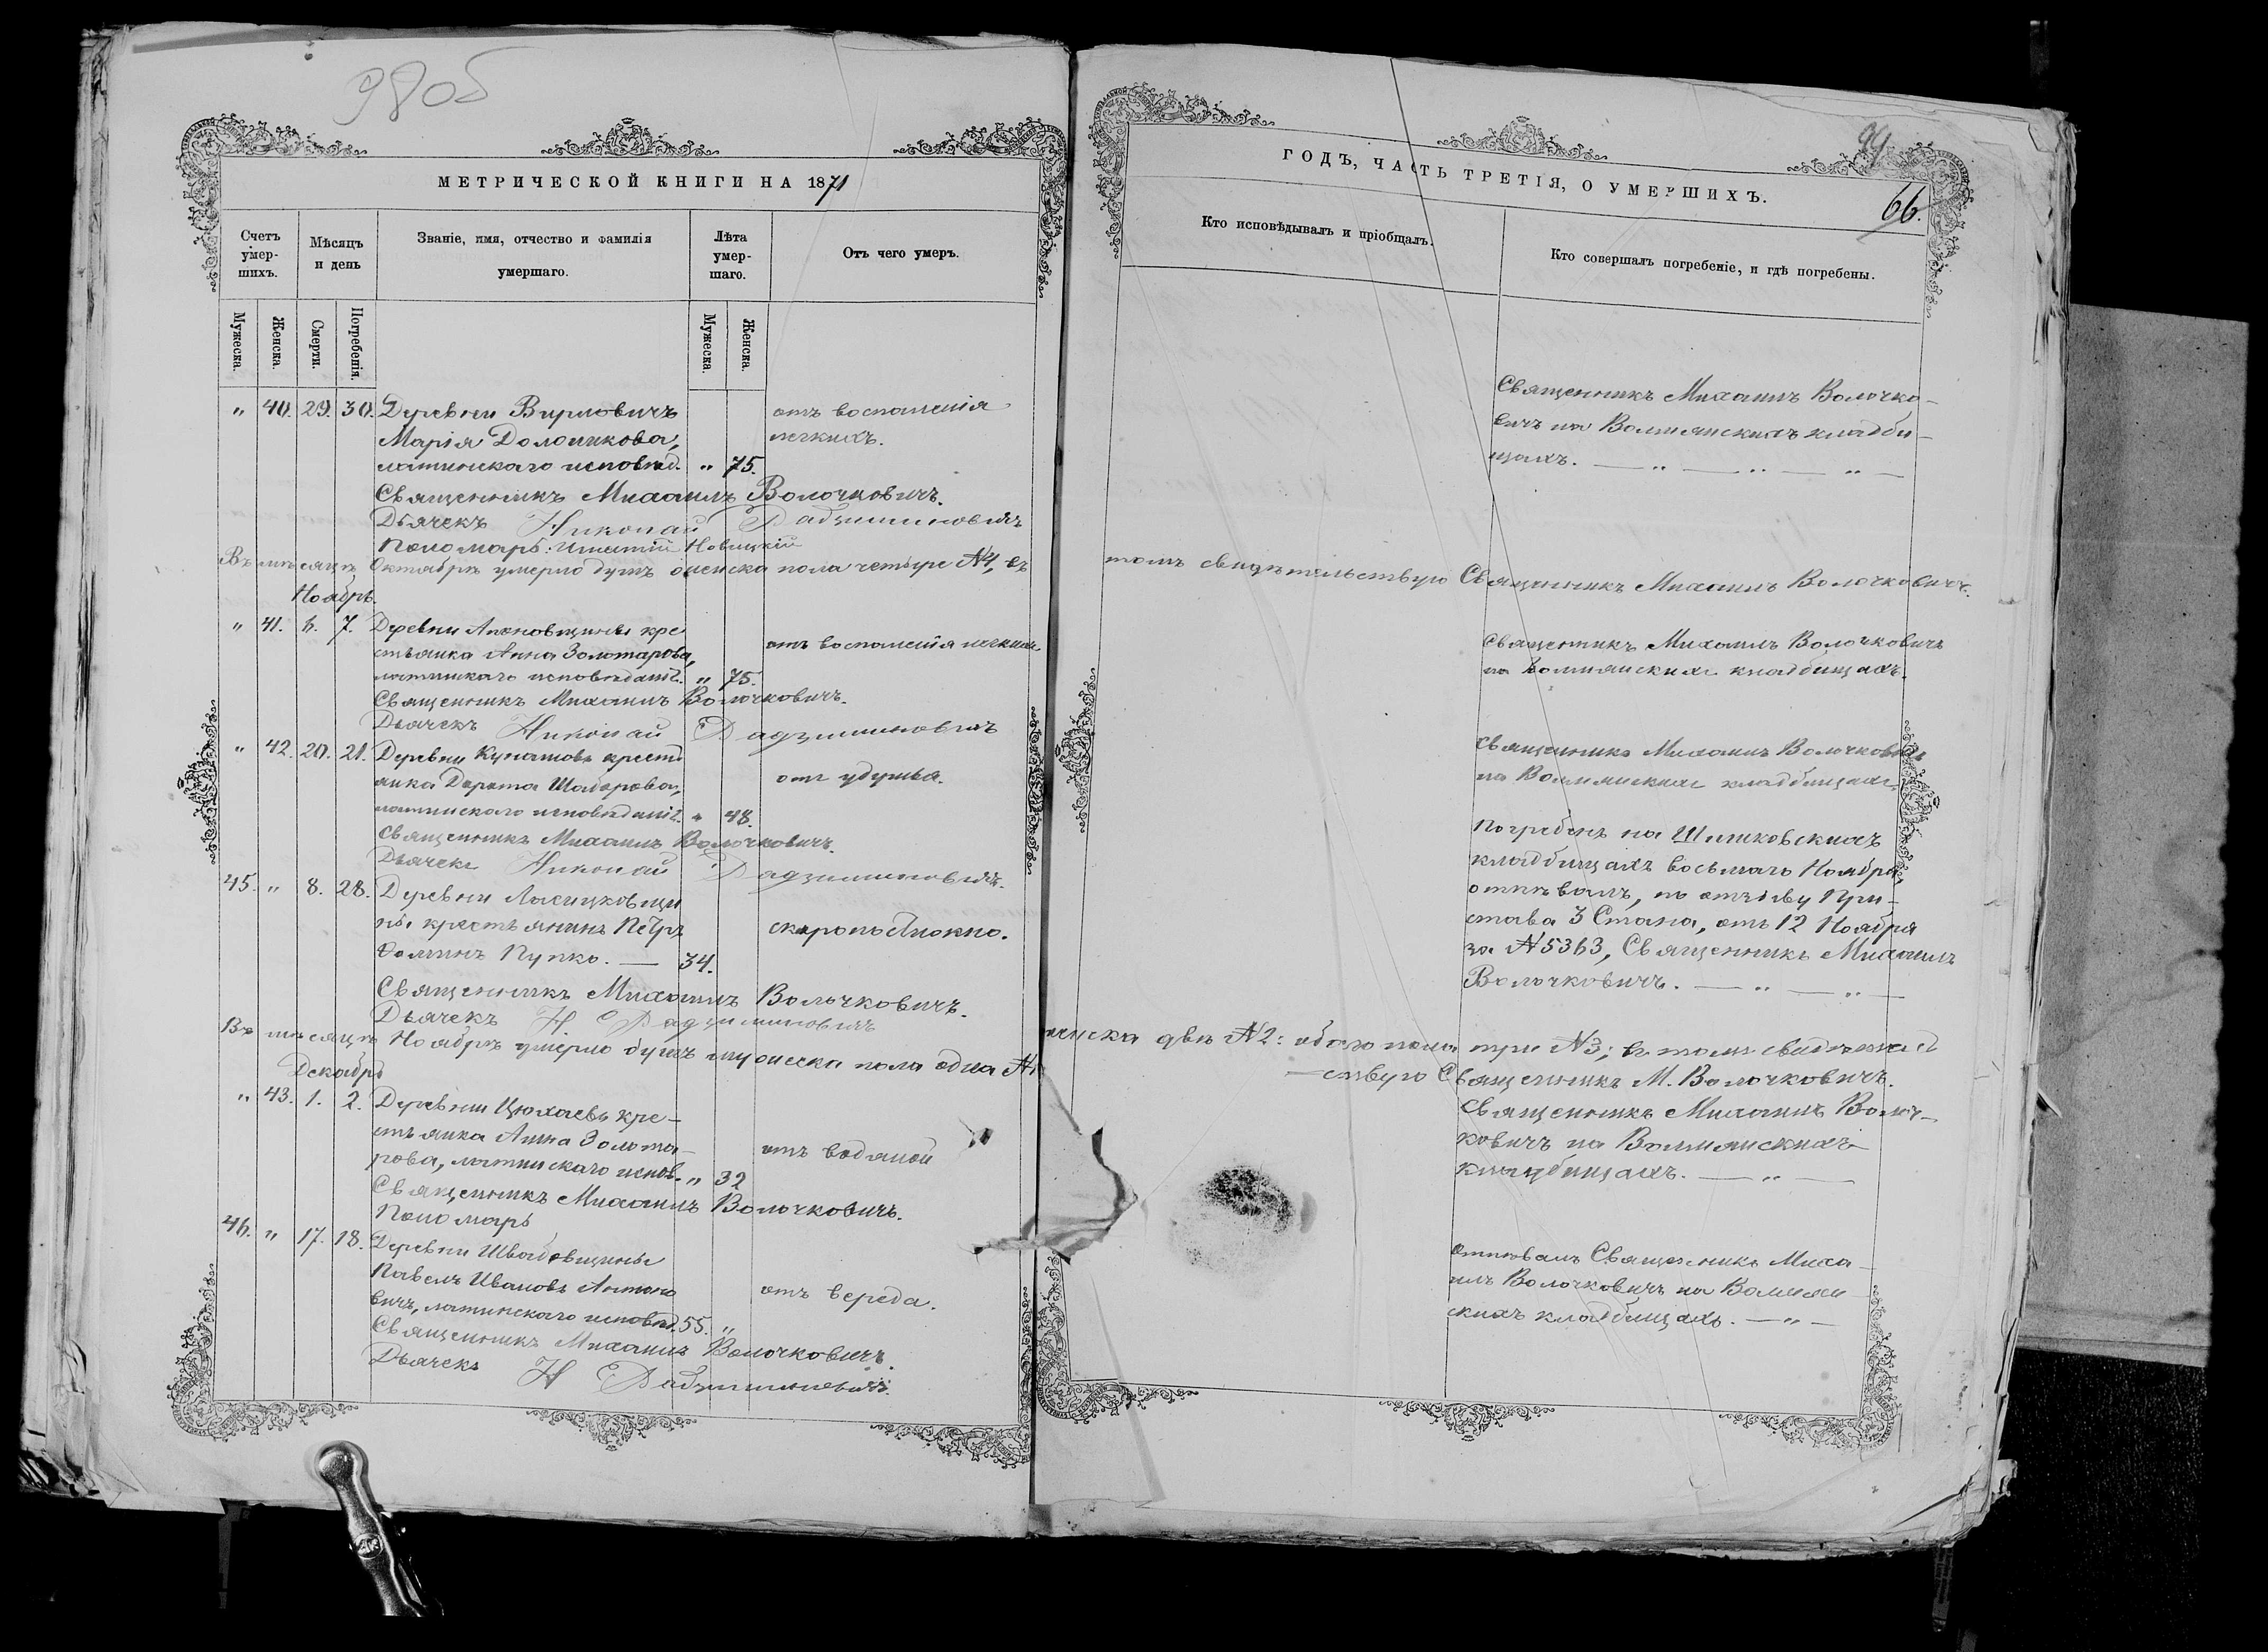 98об
МЕТРИЧЕСКОЙ КНИГИ НА 1871
Счетъ умер-шихъ.
Мѣсяцъ и день
Званіе, имя, отчество и фамилія умершаго.
Лѣта умер-шаго.
Отъ чего умеръ.
Мужеска. Женска. Смерти. Погребенія. Мужеска. Женска.
" 40. 29. 30. Деревни Вирловичъ отъ воспаленія
Марія легкихъ.
латинскаго исповѣд. " 75.
Священникъ Михаилъ Волочковичъ.
Дьячекъ Николай
Пономарь: Новицкій
Въ мѣсяцѣ Октябрѣ умерло душъ женска пола четыре №4, въ
Ноябрь.
" 41. 6. 7. Деревни кре-
стьянка Анна Золотарова, отъ воспаленія легкихъ
латинскаго исповѣданія. " 75.
Священникъ Михаилъ Волочковичъ.
Дьячекъ Николай
" 42. 20. 21. Деревни крестья-
янка отъ удушья.
латинскаго исповѣданія. " 48.
Священникъ Михаилъ Волочковичъ.
Дьячекъ Николай
45. " 8. 28. Деревни Ласицковщи
ны крестьянинъ Петръ скоропостижно.
Фоминъ Пупко. — 34.
Священникъ Михаилъ Волочковичъ.
Дьячекъ Н
Въ мѣсяцѣ Ноябрѣ умерло душъ мужеска пола одна №1
Декабрь
" 43. 1. 2. Деревни Цюхаевъ кре-
стьянка Анна Золота- отъ водяной
рова, латинскаго испов. " 32
Священникъ Михаилъ Волочковичъ.
Пономарь
46. " 17. 18. Деревни
Павелъ Ивановъ Антоно отъ вереда.
вичъ, латинскаго исповѣд. 55. "
Священникъ Михаилъ Волочковичъ.
Дьячекъ Н
ГОДЪ, ЧАСТЬ ТРЕТІЯ, О УМЕРШИХЪ.
66.
Кто исповѣдывалъ и пріобщалъ.
Кто совершалъ погребеніе, и гдѣ погребены.
Священникъ Михаилъ Волочко-
вичъ на Волмянскихъ кладби-
щахъ. — " — " — " —
томъ свидѣтельствую Священникъ Михаилъ Волочковичъ.
Священникъ Михаилъ Волочковичъ
на Волмянскихъ кладбищахъ.
Священникъ Михаилъ Волочковичъ
на Волмянскихъ кладбищахъ.
Погребенъ на
кладбищахъ восьмаго Ноября,
отпѣвалъ, по отзыву При-
става 3 Стана, отъ 12 Ноября
за №5363, Священникъ Михаилъ
Волочковичъ. — " — " —
женска двѣ №2: обоего пола три №3; въ томъ свидѣтель
—ствую Священникъ М. Волочковичъ.
Священникъ Михаилъ Волоч-
ковичъ на Волмянскихъ
кладбищахъ. — " —
Отпѣвалъ Священникъ Миха-
илъ Волочковичъ на Волмян
скихъ кладбищахъ. — " —